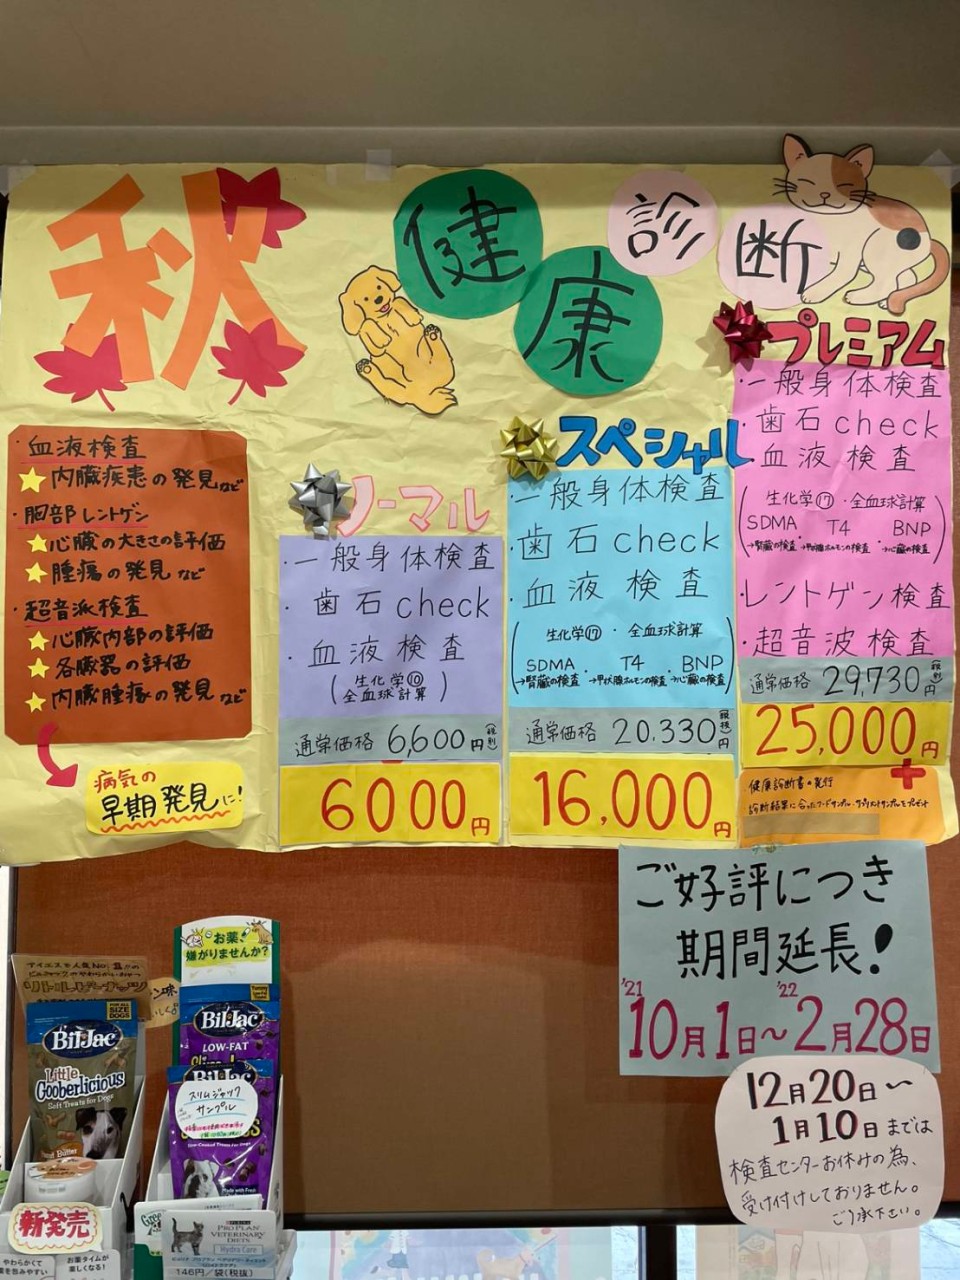 秋
健康診断
・血液検査
内臓疾患の発見など
・胸部レントゲン
心臓の大きさの評価
腫瘍の発見など
・超音波検査
心臓内部の評価
各臓器の評価
内臓腫瘍の発見など
病気の
早期発見に!
ノーマル
・一般身体検査
・歯石check
・血液検査
(生化学⑩
全血球計算)
通常価格 6,600円(税別)
6000円
スペシャル
・一般身体検査
・歯石check
・血液検査
(生化学⑰・全血球計算
SDMA・T4・BNP
→腎臓の検査→甲状腺ホルモンの検査→心臓の検査)
通常価格 20,330円
16,000円
プレミアム
・一般身体検査
・歯石check
・血液検査
(生化学⑰・全血球計算
SDMA T4 BNP
→腎臓の検査→甲状腺ホルモンの検査→心臓の検査)
・レントゲン検査
・超音波検査
通常価格 29,730円(税別)
25,000円
+
健康診断書の発行
診断結果に合ったフードサンプル・サプリメントサンプルをプレゼント
ご好評につき
期間延長!
'21 '22
10月1日〜2月28日
12月20日〜
1月10日までは
検査センターお休みの為、
受け付けしておりません。
ご了承下さい。
お薬、
嫌がりませんか?
リトルピーナッツ
FOR ALL
SIZE
DOGS
Bil-Jac
Little
Gooberlicious
Soft Treats for Dogs
Peanut Butter
新発売
やわらかくて
お薬タイムが
楽しくなる!
Bil-Jac
LOW-FAT
Bil-Jac
スリムジャック
サンプル
PURINA
PRO PLAN
VETERINARY
DIETS
Hydra Care
146円/袋(税抜)